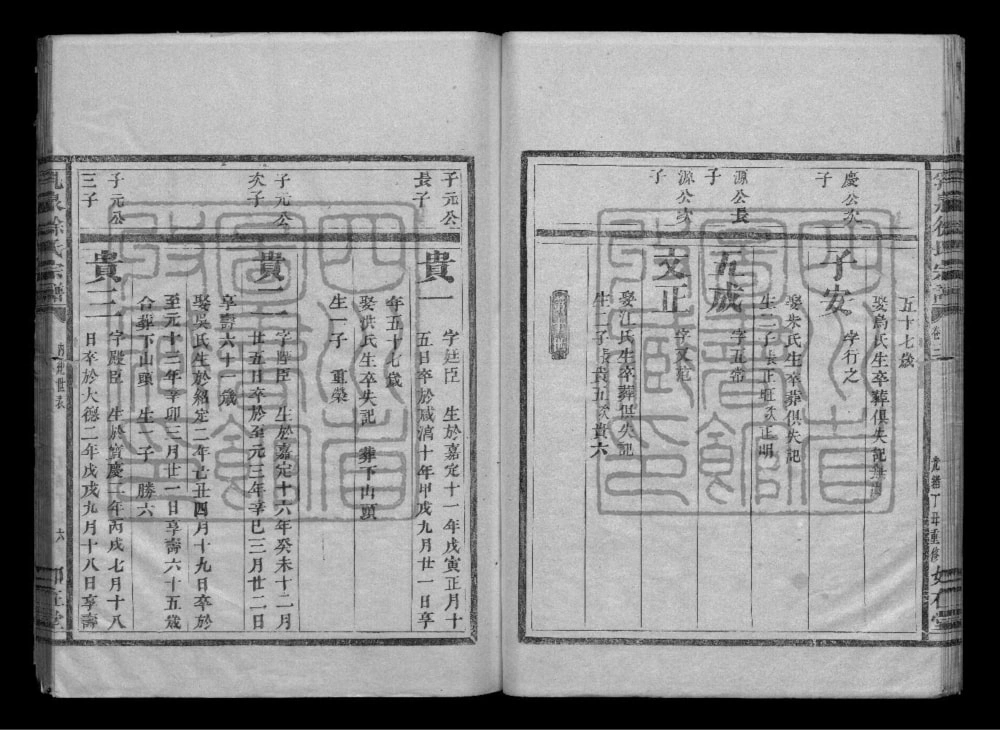 五十七歲
娶烏氏生卒葬俱失記
慶公次子
子安
字行之
娶朱氏生卒葬俱失記
生二子長正旺次正明
源公長子
五成
字五常
娶江氏生卒葬俱失記
生二子長貴五次貴六
源公次子
文正
字文範
光緒丁丑重修
子元公長子
貴一
字廷臣 生於嘉定十一年戊寅正月十
五日卒於咸淳十年甲戌九月廿一日享
年五十七歲
娶洪氏生卒失記 葬下山頭
生一子 重榮
子元公次子
貴二
字陛臣 生於嘉定十六年癸未十二月
廿五日卒於至元三年辛巳三月廿二日
享壽六十一歲
娶吳氏生於紹定二年己丑四月十九日卒於
至元十三年辛卯三月廿一日享壽六十五歲
合葬下山頭 生一子 勝六
子元公三子
貴三
字殿臣 生於寶慶二年丙戌七月十八
日卒於大德二年戊戌九月十八日享壽
徐氏宗譜
世表
六